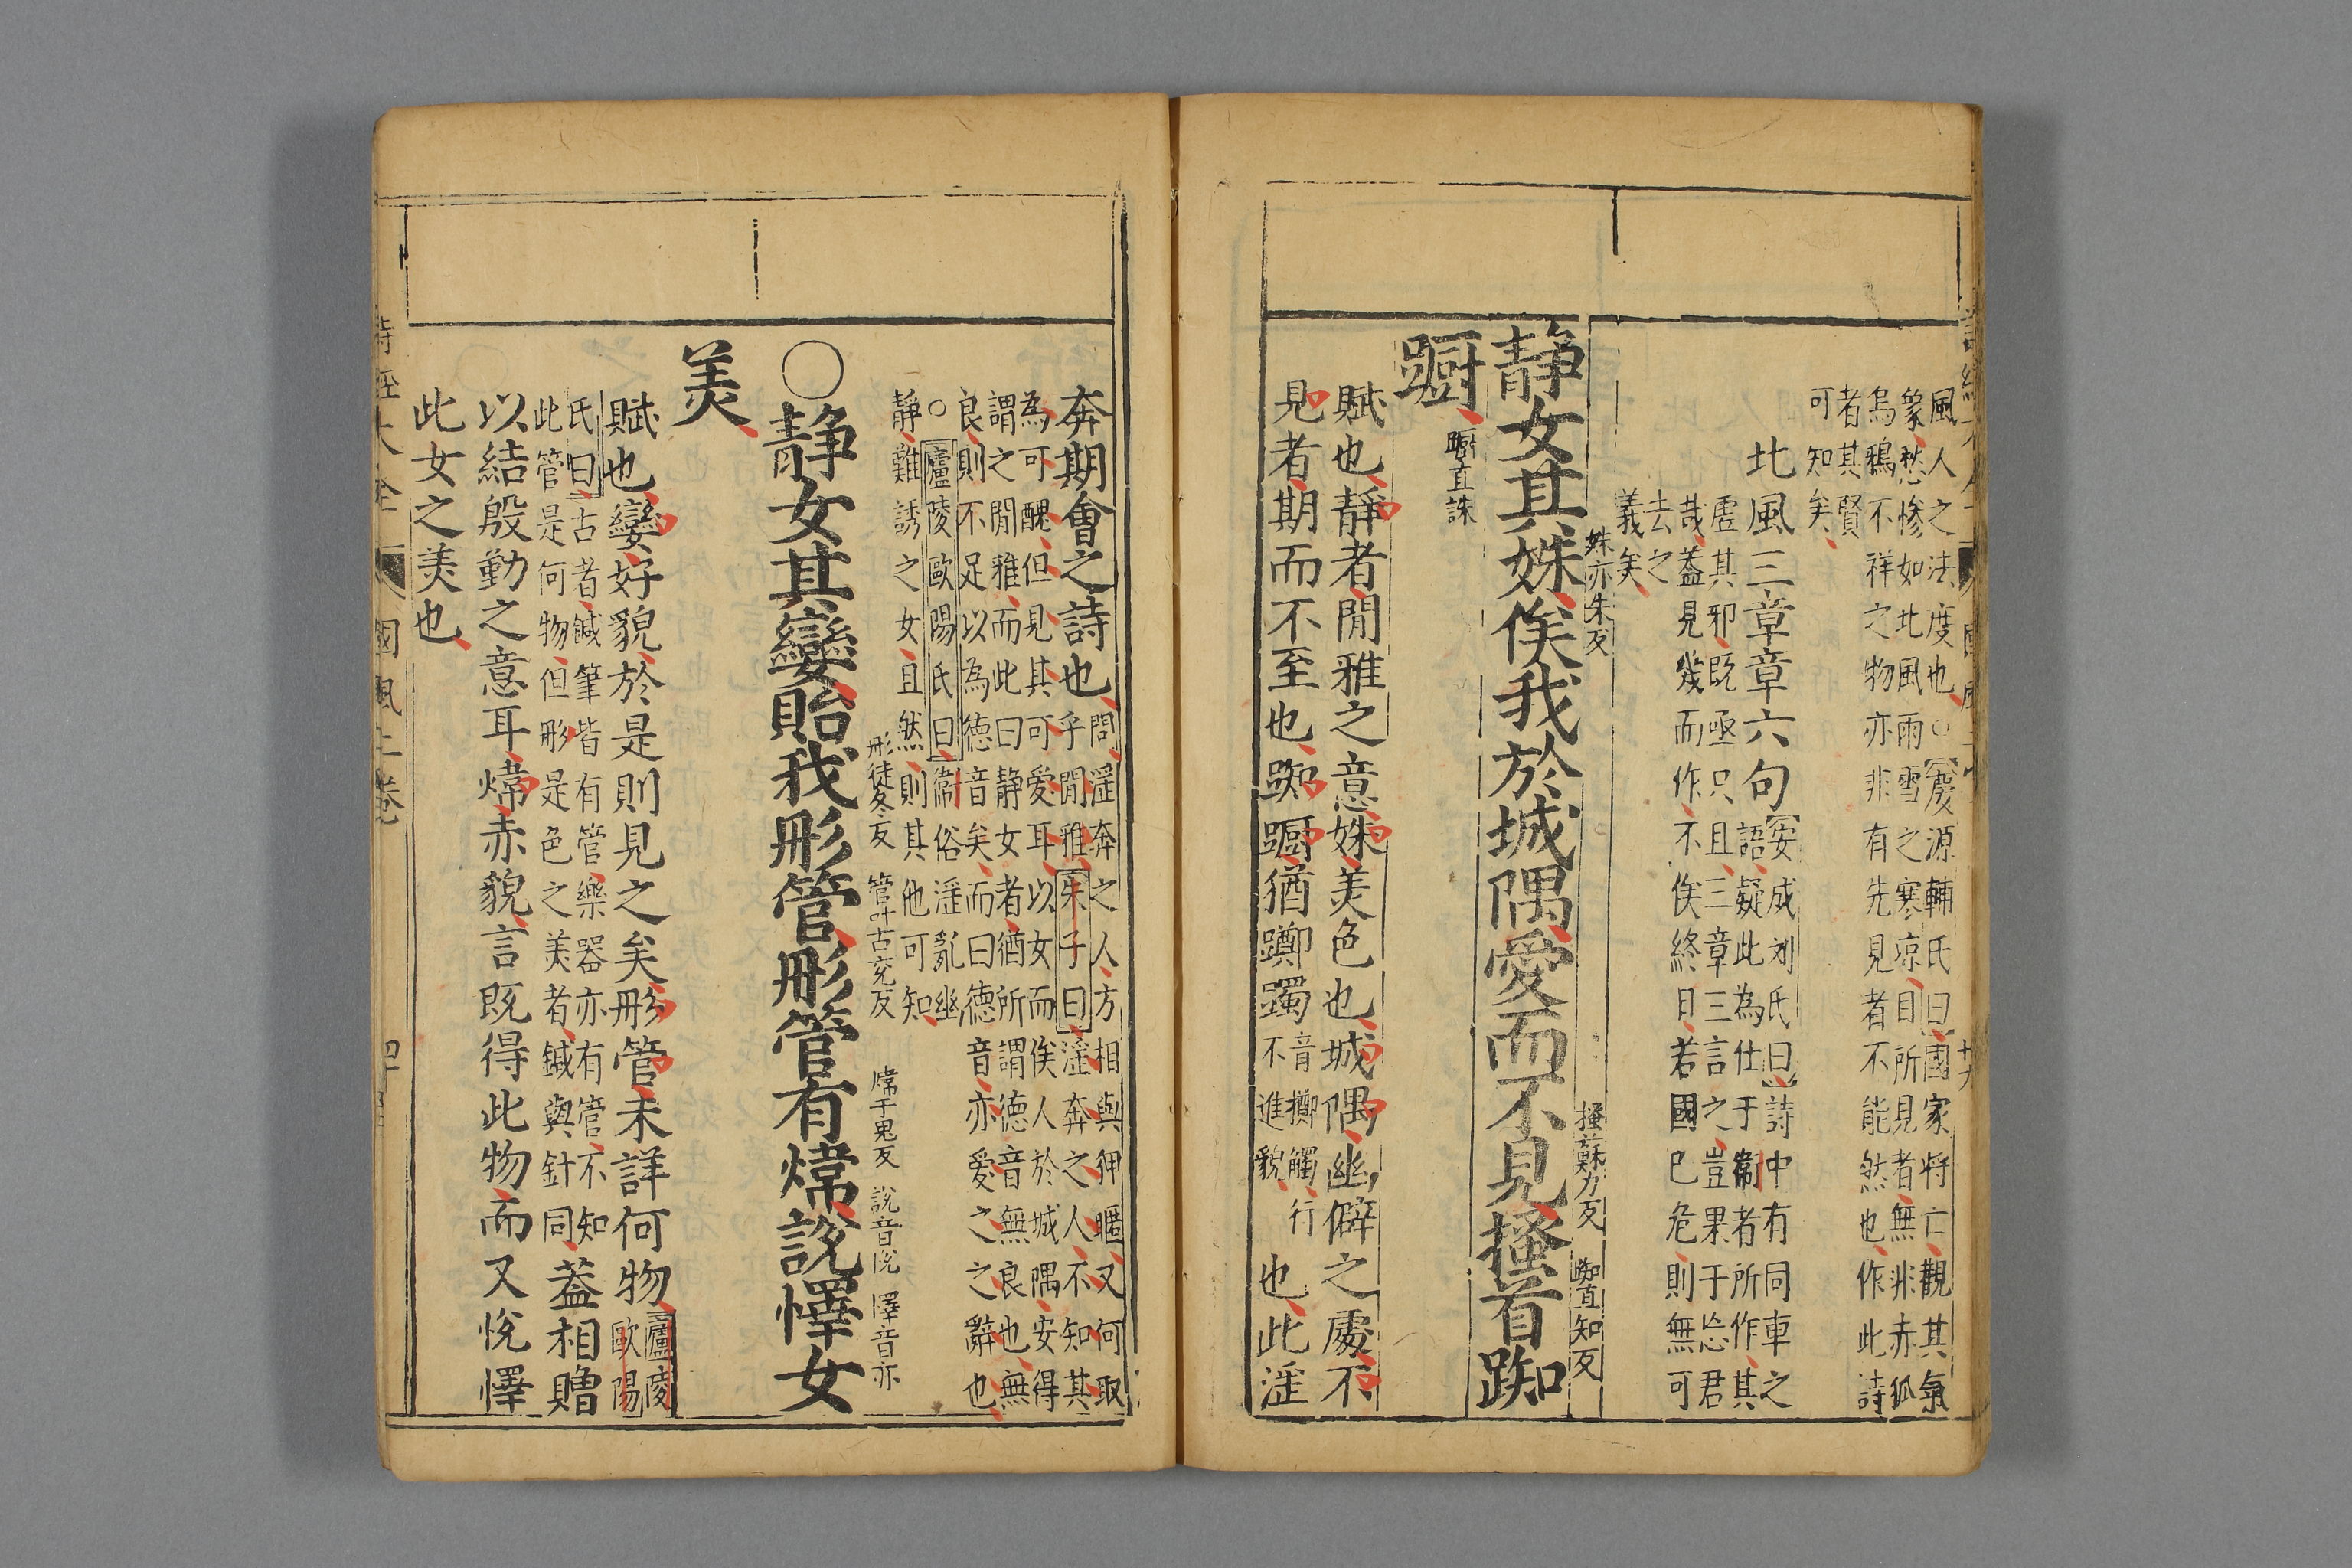 風人之法度也○慶源輔氏曰國家將亡觀其氣
象愁慘如北風雨雪之寒凉目所見者無非赤狐
烏鵶不祥之物亦非有先見者不能然也作此詩
者其賢
可知矣
北風三章章六句
安成刘氏曰詩中有同車之
語疑此為仕于衛者所作其
虛其邪既亟只且三章三言之豈果于忘君
哉蓋見幾而作不俟終日若國已危則無可
去之
義矣
姝亦朱反
搔蘇刀反
踟直知反
静女其姝俟我於城隅愛而不見搔首踟
蹰
蹰直誅
賦也靜者閒雅之意姝美色也城隅幽僻之處不
見者期而不至也踟蹰猶躑躅
音擲觸行
不進貌
也此淫
奔期會之詩也
問淫奔之人方相與狎暱又何取
乎閒雅朱子曰淫奔之人不知其
為可醜但見其可愛耳以女而俟人於城隅安得
謂之閒雅而此曰静女者猶所謂德音無良也無
良則不足以為德音矣而曰德音亦愛之之辭也
○廬陵歐陽氏曰衛俗淫亂幽
靜難誘之女且然則其他可知
彤徒冬反
管叶古兗反
煒于鬼反
說音悅
懌音亦
○静女其孌貽我彤管彤管有煒說懌女
美
賦也孌好貌於是則見之矣彤管未詳何物
廬陵
歐陽
氏曰古者鍼筆皆有管樂器亦有管不知
此管是何物但彤是色之美者鍼與針同
蓋相贈
以結殷勤之意耳煒赤貌言既得此物而又悅懌
此女之美也
詩經大全
國風二卷